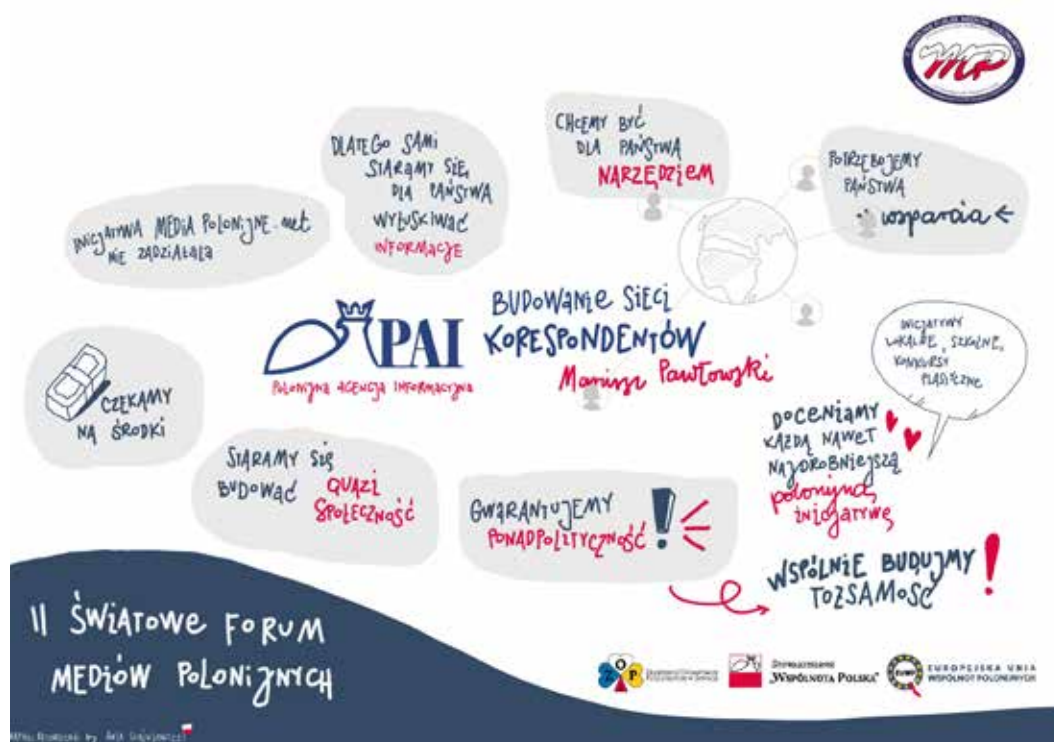 INICJATYWA MEDIA POLONIJNE.net
NIE ZADZIAŁAŁA
DLATEGO SAMI
STARAMY SIĘ,
DLA PAŃSTWA
WYŁUSKIWAĆ
INFORMACJE
CHCEMY BYĆ
DLA PAŃSTWA
NARZĘDZIEM
POTRZEBUJEMY
PAŃSTWA
wsparcia
PAI
POLONIJNA AGENCJA INFORMACYJNA
BUDOWANIE SIECI
KORESPONDENTÓW
Mariusz Pawłowski
INICJATYWY
LOKALNE, SZKOLNE,
KONKURSY
PLASTYCZNE
CZEKAMY
NA ŚRODKI
STARAMY SIĘ
BUDOWAĆ QUAZI
SPOŁECZNOŚĆ
GWARANTUJEMY
PONADPOLITYCZNOŚĆ !
DOCENIAMY
KAŻDĄ NAWET
NAJDROBNIEJSZĄ
polonijną
inicjatywę
WSPÓLNIE BUDUJMY
TOŻSAMOŚĆ !
II ŚWIATOWE FORUM
MEDIÓW POLONIJNYCH
ZOP
STOWARZYSZENIE
„WSPÓLNOTA POLSKA"
EUROPEJSKA UNIA
WSPÓLNOT POLONIJNYCH